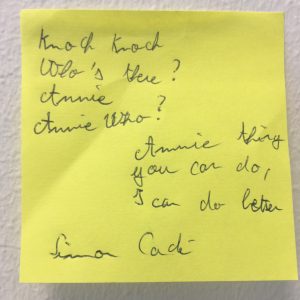 Knock Knock
Who's there?
Annie
Annie Who?
Annie thing
you can do,
I can do better
Simon Cadé